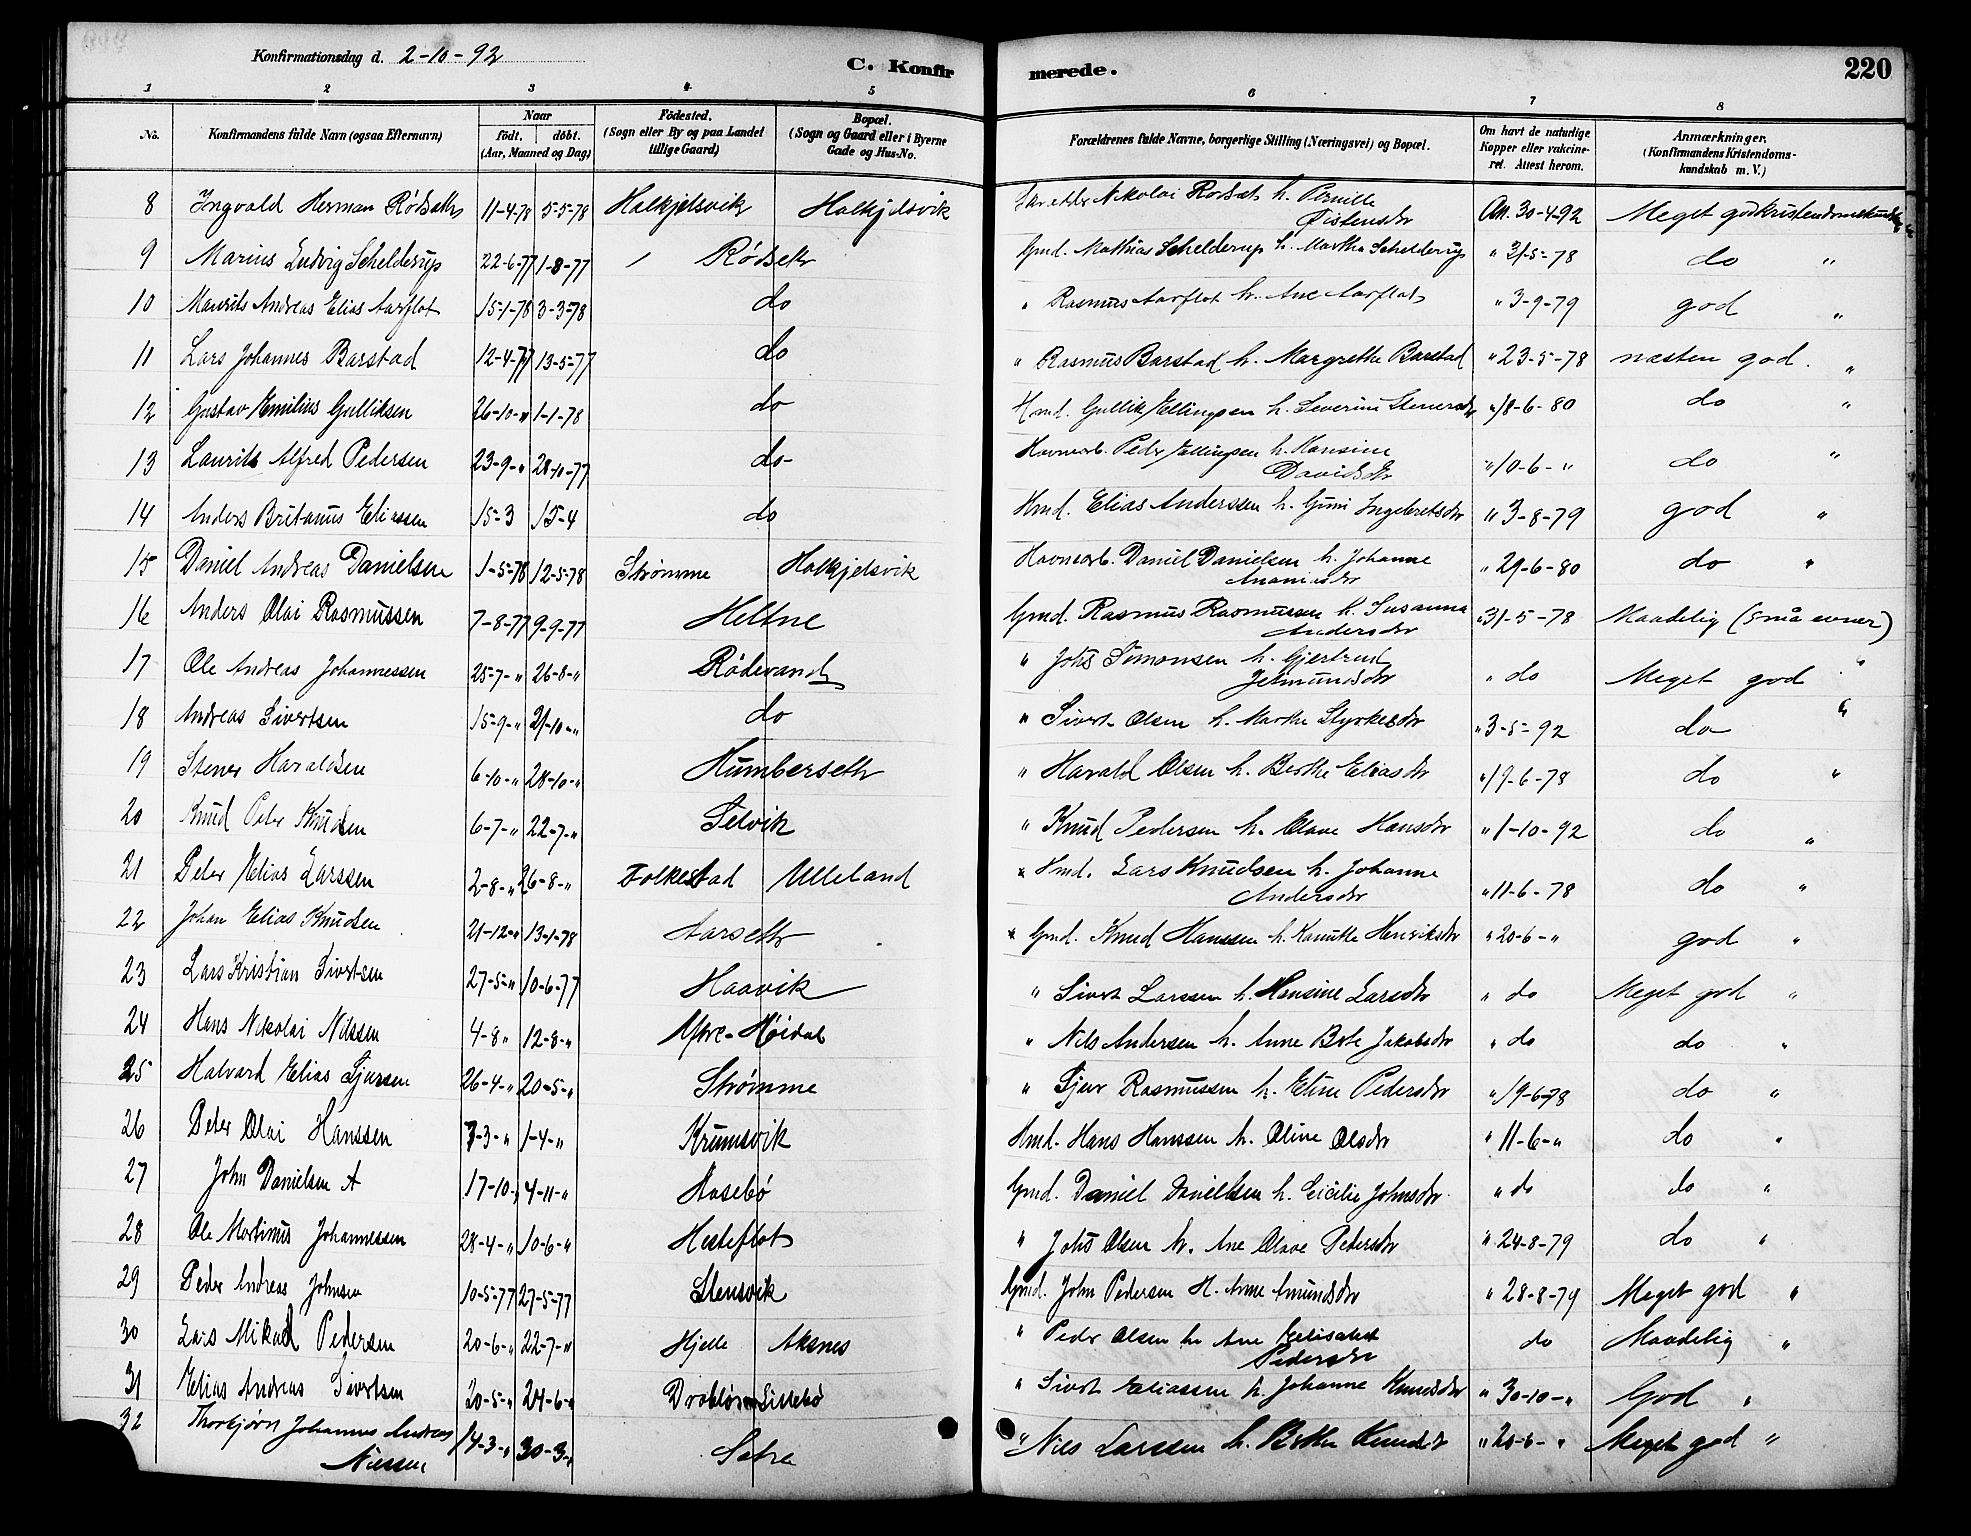 Konfirmationsdag d. 2-10-92
C. Konfirmerede.
220
1 2 3 4 5 6 7 8
No. Konfirmandens fulde Navn (ogsaa Efternavn) Naar født. døbt. (Aar, Maaned og Dag) Fødested. (Sogn eller By og paa Landet tillige Gaard) Bopæl. (Sogn og Gaard eller i Byerne Gade og Hus-No. Forældrenes fulde Navne, borgerlige Stilling (Næringsvei) og Bopæl. Om havt de naturlige Kopper eller vakcineret. Attest herom. Anmærkninger. (Konfirmandens Kristendomskundskab m. V.)
8 Ingvald Herman Rødseth 11-4-78 5-5-78 Halkjelsvik Halkjelsvik Nikolai Rødset h. Pernille Øistensdr Att. 30-4-92 Meget god kristendomskundsk
9 Marius Ludvig Schelderup 22-6-77 1-8-77 Rødseth Gmd. Mathias Schelderup h. Martha Schelderup " 31-5-78 do "
10 Mauritz Andreas Elias Aarflot 15-1-78 3-3-78 do " Rasmus Aarflot h. Ane Aarflot " 3-9-79 god "
11 Lars Johannes Barstad 12-4-77 13-5-77 do " Rasmus Barstad h. Margrethe Barstad " 23-5-78 næsten god. "
12 Gustav Emilius Gulliksen 26-10-" 1-1-78 do Hmd. Gullik Ellingsen h. Severine Stenersdr " 18-6-80 do "
13 Laurits Alfred Pedersen 23-9-" 28-10-77 do Havnearb. Peder Ellingsen h. Hansine Davidsdr " 10-6-" do "
14 Anders Britanus Eliassen 15-3 15-4 do Hmd. Elias Anderssen h. Guni Ingebretsdr " 3-8-79 god "
15 Daniel Andreas Danielsen 1-5-78 12-5-78 Strømme Halkjelsvik Havnearb. Daniel Danielsen h. Johanne Ananiasdr " 29-6-80 do "
16 Anders Olai Rasmussen 7-8-77 9-9-77 Heltne Gmd. Rasmus Rasmussen h. Susanna Andersdr " 31-5-78 Maadelig (små evner)
17 Ole Andreas Johannessen 25-7-" 26-8-" Rødevand " Johs Simonsen h. Gjertrud Jetmundsdr " do Meget god "
18 Andreas Sivertsen 15-9-" 21-10-" do " Sivert Olsen h. Marthe Styrkesdr " 3-5-92 do "
19 Stener Haraldsen 6-10-" 28-10-" Humberseth " Harald Olsen h. Berthe Eliasdr " 19-6-78 do "
20 Knud Peter Knudsen 6-7-" 22-7-" Selvik " Knud Pedersen h. Olave Hansdr " 1-10-92 do "
21 Peter Elias Larssen 2-8-" 26-8-" Folkestad Ulleland Hmd. Lars Knudsen h. Johanne Andersdr " 11-6-78 do "
22 Johan Elias Knudsen 21-12-" 13-1-78 Aarseth Gmd. Knud Hanssen h. Kanutte Henriksdr " 20-6-" god "
23 Lars Kristian Sivertsen 27-5-" 10-6-77 Haavik " Sivert Larssen h. Hansine Larsdr " do Meget god "
24 Hans Nikolai Nilssen 4-8 " 12-8-" Øvre-Høidal " Nils Andersen h. Anne Brte Jakobsdr " do do "
25 Halvard Elias Sjursen 26-4-" 20-5-" Strømme " Sjur Rasmussen h. Eline Pedersdr " 19-6-78 do "
26 Peter Olai Hanssen 7-3-" 1-4-" Krumsvik Hmd. Hans Hanssen h. Oline Olsdr " 11-6-" do "
27 John Danielsen A 17-10-" 4-11-" Aasebø Gmd. Daniel Danielsen h. Cicilie Johnsdr " do do "
28 Ole Martinus Johannessen 28-4-" 10-6-" Hesteflot " Johs Olsen h. Ane Olave Pedersdr " 24-8-79 do "
29 Peder Andreas Johnsen 10-5-77 27-5-77 Stensvik Gmd. John Pedersen H. Anne Amundsdr " 28-8-79 Meget god "
30 Lars Mikael Pedersen 20-6-" 22-7-" Hjelle Aksnes " Peder Olsen h. Ane Elisabet Pedersdr do Maadelig "
31 Elias Andreas Sivertsen 20-5-" 24-6-" Lillebø " Sivert Eliassen h. Johanne Knudsdr " 30-10-" God "
32 Thorbjørn Johannes Andreas Nilssen 14-3-" 30-3-" Sætre " Nils Larssen h. Berthe Knudsdr " 20-6-" Meget god "